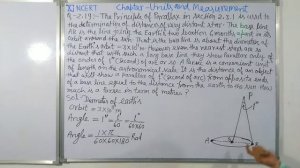 XI NCERT Chapter-Units and Measurement
Q-2.19:- The Principle of 'Parallax' in Section 2.3.1 is used in
the determination of distances of very distant stars. The base line
AB is the line joining the Earth's two location six months apart in its
orbit around the Sun. That is the base line is about the diameter of
the Earth's orbit ≈ 3×10¹¹m. However, even the nearest stars are so
distant that with such a long base line, they show parallax only of
the order of 1" (second) of arc or so. A Parsec is a convenient unit
of length on the astronomical scale. It is the distance of an object
that will show a parallax of 1" (second) of arc from opposite ends
of a base line equal to the distance from the Earth to the Sun. How
much is a Parsec in terms of metres?
Sol- Diameter of Earth's
orbit = 3×10¹¹m
Angle = 1" = 1'/60 = 1°/60×60
Angle = 1×π/60×60×180 Rad
1"
A
B